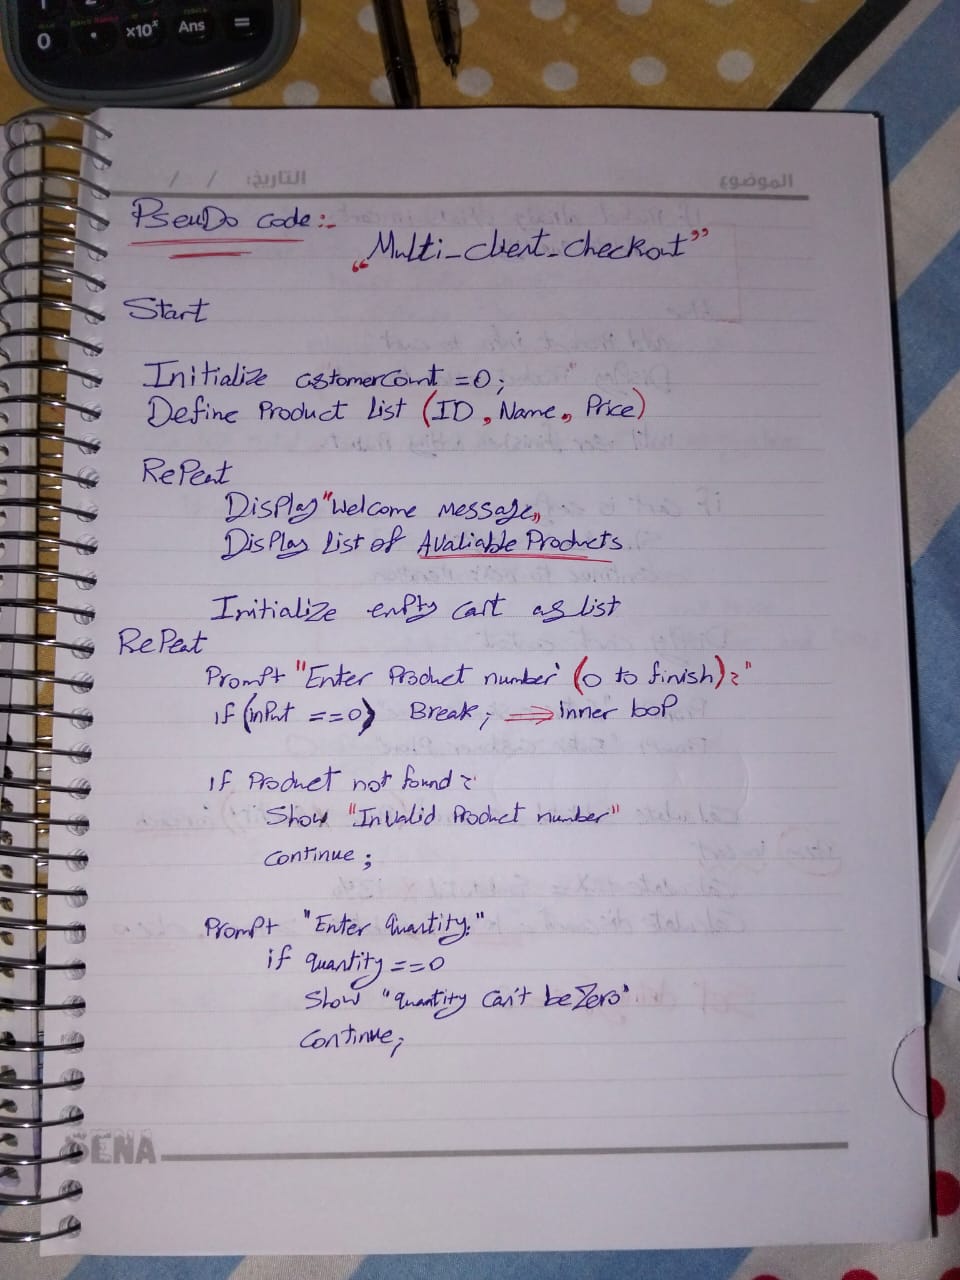 0 . ×10ˣ Ans =
التاريخ: / /
الموضوع
PseuDo code:-
"Multi_client_checkout"
Start
Initialize cstomercount =0;
Define Product List (ID, Name, Price)
RePeat
Display "Welcome Message"
Display List of Avaliable Products
Initialize empty cart as list
RePeat
Prompt "Enter Product number (0 to finish):"
if (input ==0) Break; ⇒ inner loop
if Product not found:
Show "Invalid Product number"
continue;
Prompt "Enter Quantity:"
if quantity ==0
Show "quantity can't be Zero"
continue;
SENA